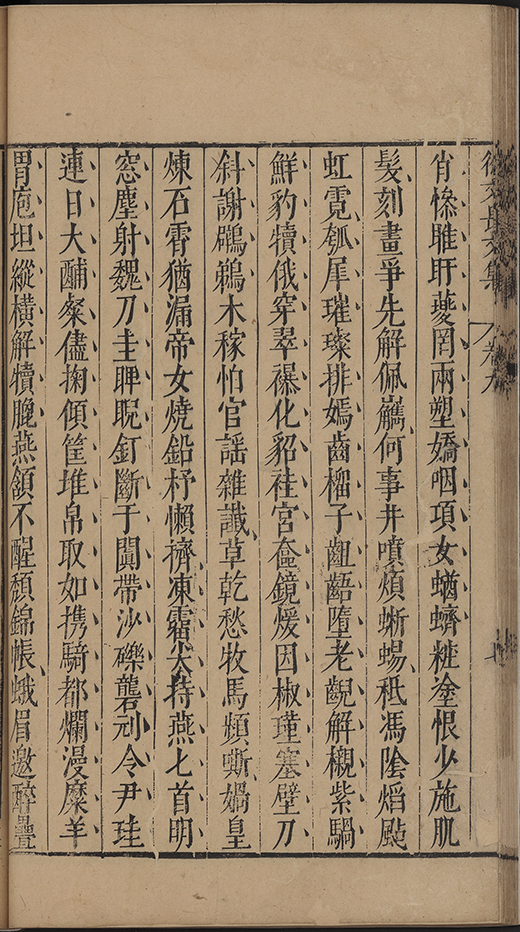 卷九
肖慘雎盱夔罔兩塑嬌咽項女蝤蠐粧塗恨少施肌
髮刻畫爭先解佩巂何事井噴煩蜥蜴秪馮陰熖颭
虹霓瓠犀璀璨排嫣齒榴子齟齬墮老齯解櫬紫騧
鮮豹犢俄穿翠襮化貂袿宮奩鏡煖因椒瑾塞壁刀
斜謝鸊鵜木稼怕官謠雜讖草乾愁牧馬頻嘶媧皇
煉石霄猶漏帝女燒鉛杼懶擠凍霤尖持燕匕首明
窓塵射魏刀圭睥睨釘斷于闐帶沙礫礱刓令尹珪
連日大酺粲儘掬傾筐堆帛取如携騎都爛漫糜羊
胃庖坦縱橫解犢燕頷不醒頹錦帳蛾眉邀醉疊